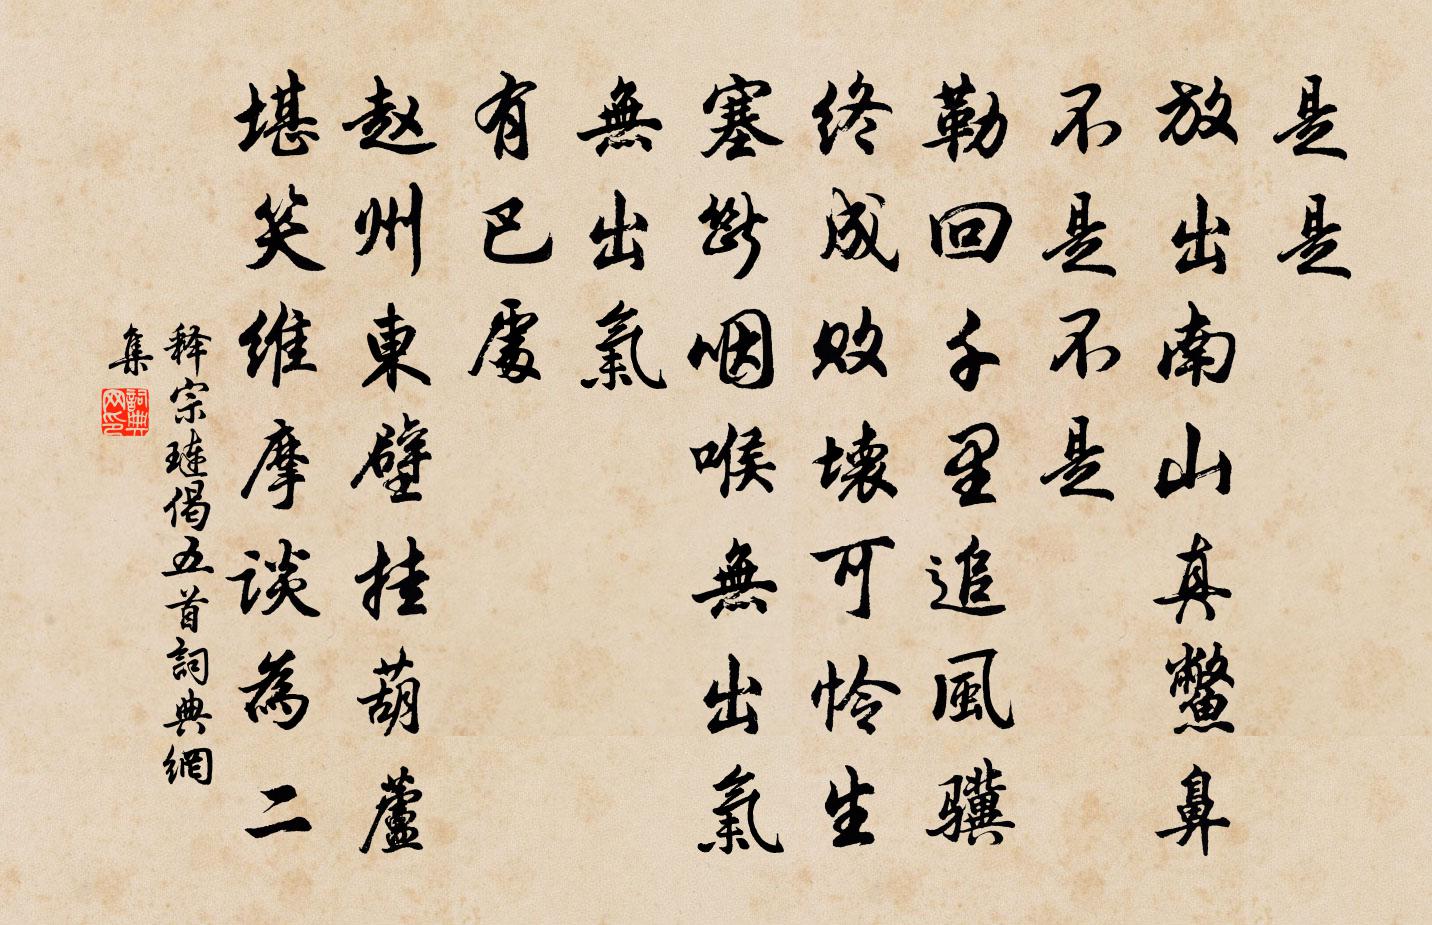 是是
放出南山真鳖鼻
不是不是
勒回千里追風骥
终成敗壞可怜生
塞斷咽喉無出氣
無出氣
有巴處
赵州東壁挂葫蘆
堪笑维摩談為二
释宗琏偈五首詞典網
集
詞典
网印